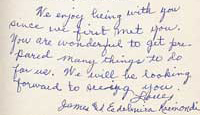 We enjoy being with you
since we first met you.
You are wonderful to get pre-
pared many things to do
for us. We will be looking
forward to seeing you.
Love,
James and Edelmira Raimondi